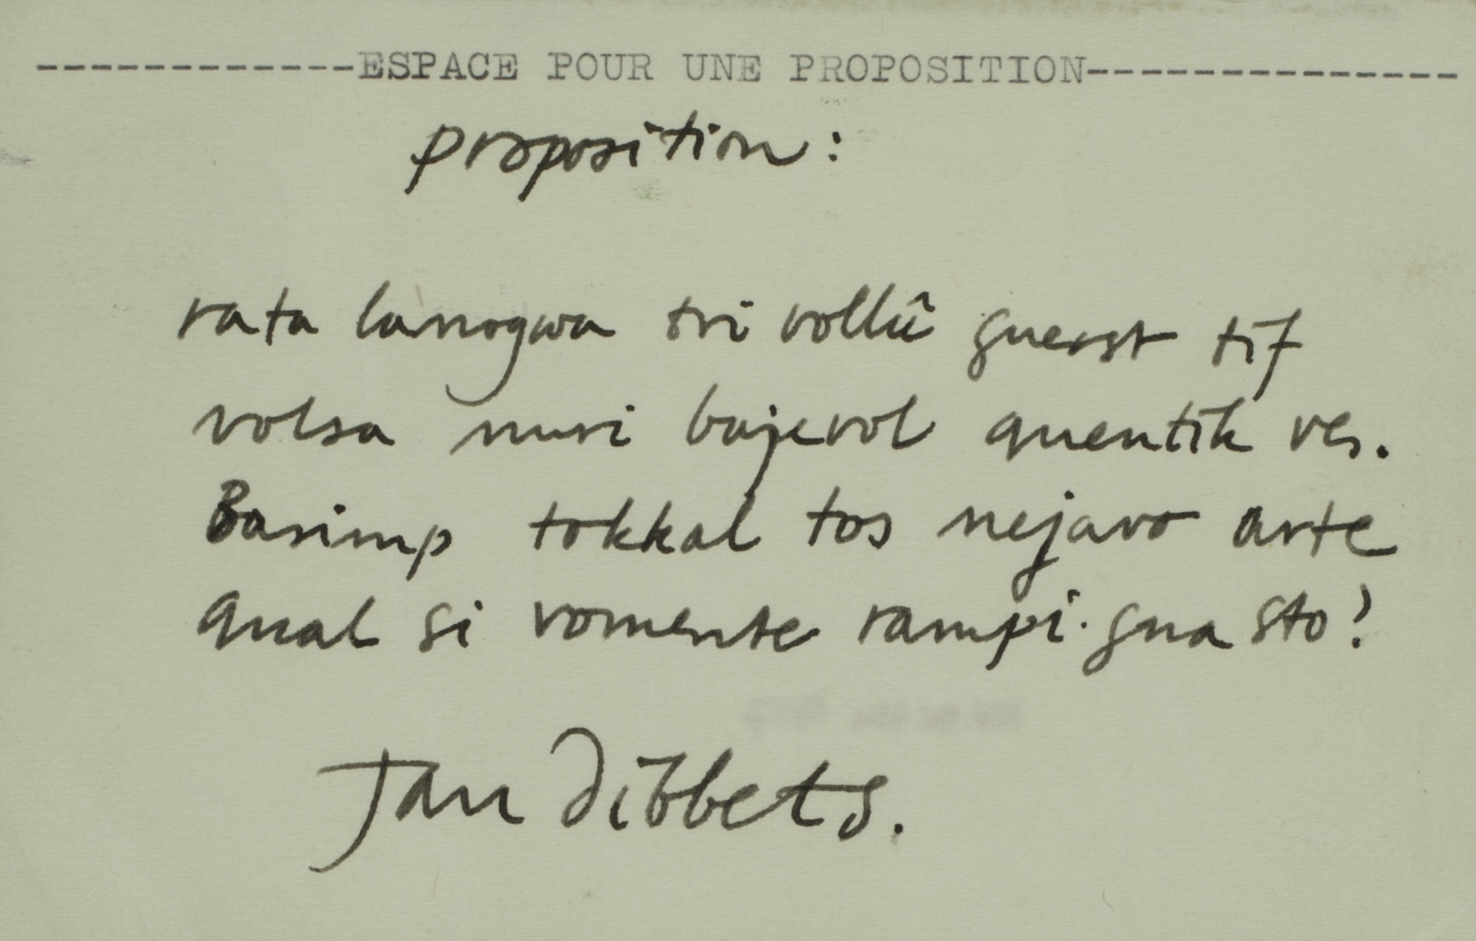 ------------ESPACE POUR UNE PROPOSITION--------------
proposition:
rata lanogwa tri vollû guerst tif
volsa nuri bajevol quentik ves.
Basimp tokkal tos nejavo arte
qual si vomente rampi. gua sto?
Jan Dibbets.